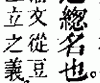 之總名也
文從豆
立之義